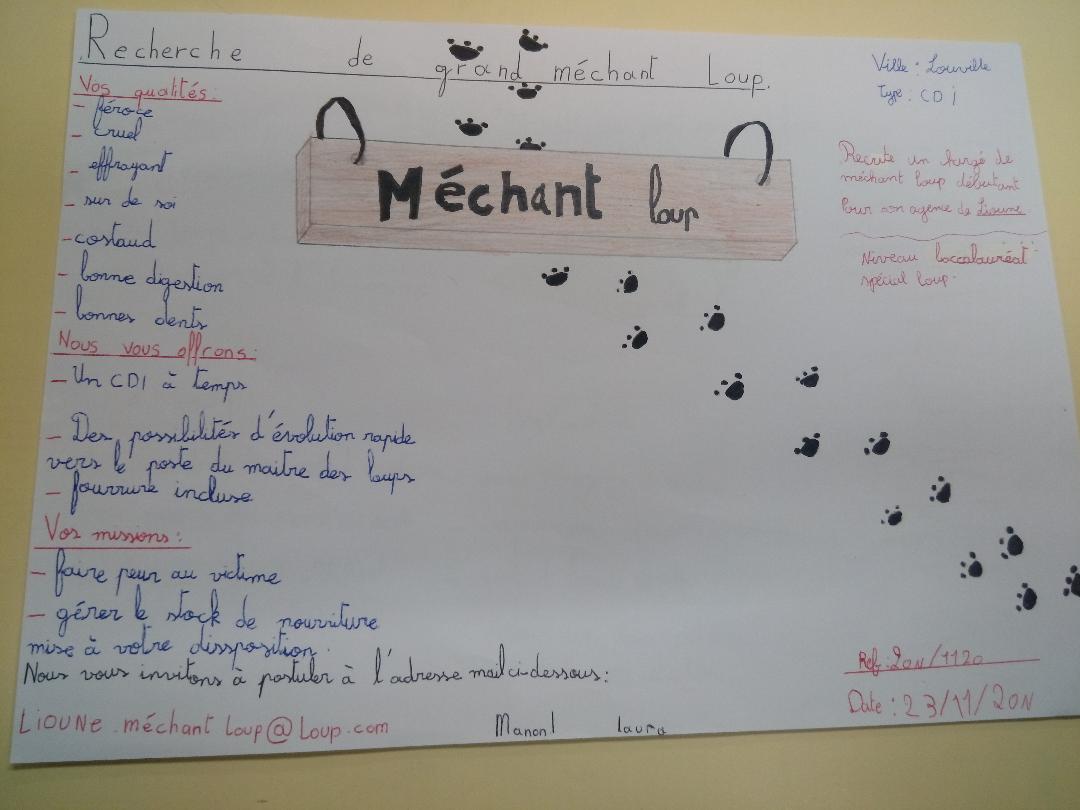 Recherche de grand méchant Loup.
Ville : Louville
Type : CDi
Vos qualités :
- féroce
- cruel
- effrayant
- sur de soi
- costaud
- bonne digestion
- bonnes dents
Méchant loup
Recrute un chargé de
méchant loup débutant
Pour son agence de Lioune
Niveau baccalauréat
spécial loup.
Nous vous offrons :
- Un CDI à temps
- Des possibilités d'évolution rapide
vers le poste du maitre des loups
- fourrure incluse
Vos missions :
- faire peur au victime
- gérer le stock de nourriture
mise à votre dissposition.
Nous vous invitons à postuler à l'adresse mail ci-dessous :
LiOUNe.méchant loup@Loup.com
Manon laura
Ref : 20N/1120
Date : 23/11/20N